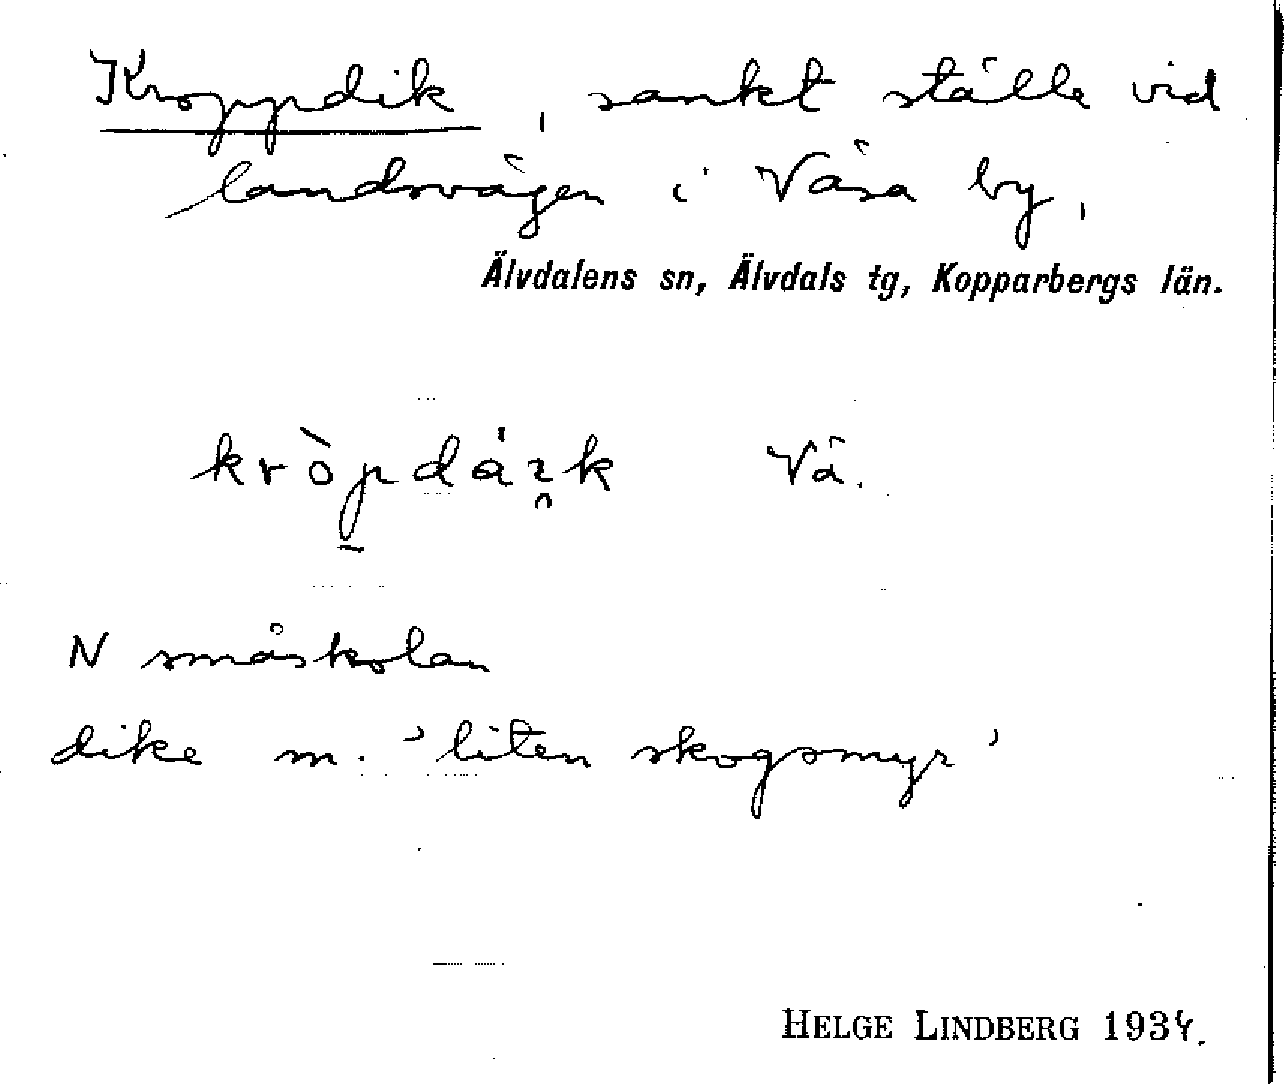 Kroppdik, sankt ställe vid
landsvägen i Väsa by,
Älvdalens sn, Älvdals tg, Kopparbergs län.
Vä.
N småskolan
dike m. 'liten skogsmyr'
HELGE LINDBERG 1934.